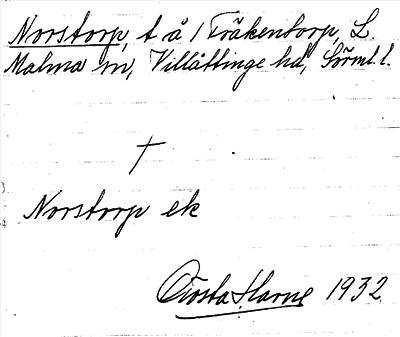 Norstorp, t å 1 Fräkentorp, L.
Malma sn, Villåttinge hd, Sörml. l.
†
Norstorp ek
Gösta Harne 1932